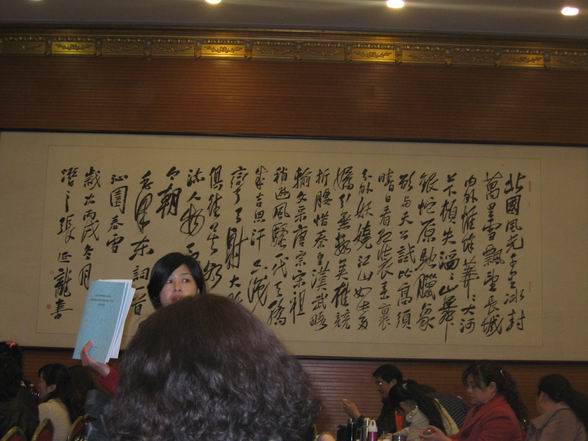 北國風光千里冰封
萬里雪飄望長城
内外惟餘莽々大河
上下頓失滔々山舞
銀蛇原馳臘象
欲与天公試比高須
晴日看紅裝素裹
分外妖嬈江山如此多
嬌引無數英雄競
折腰惜秦皇漢武略
輸文采唐宗宋祖
稍遜風騷一代天驕
成吉思汗只識
彎弓射大
俱往矣數
流人物
今朝
毛澤東詞一首
沁園春雪
歲次丙戌冬月
張延龍書